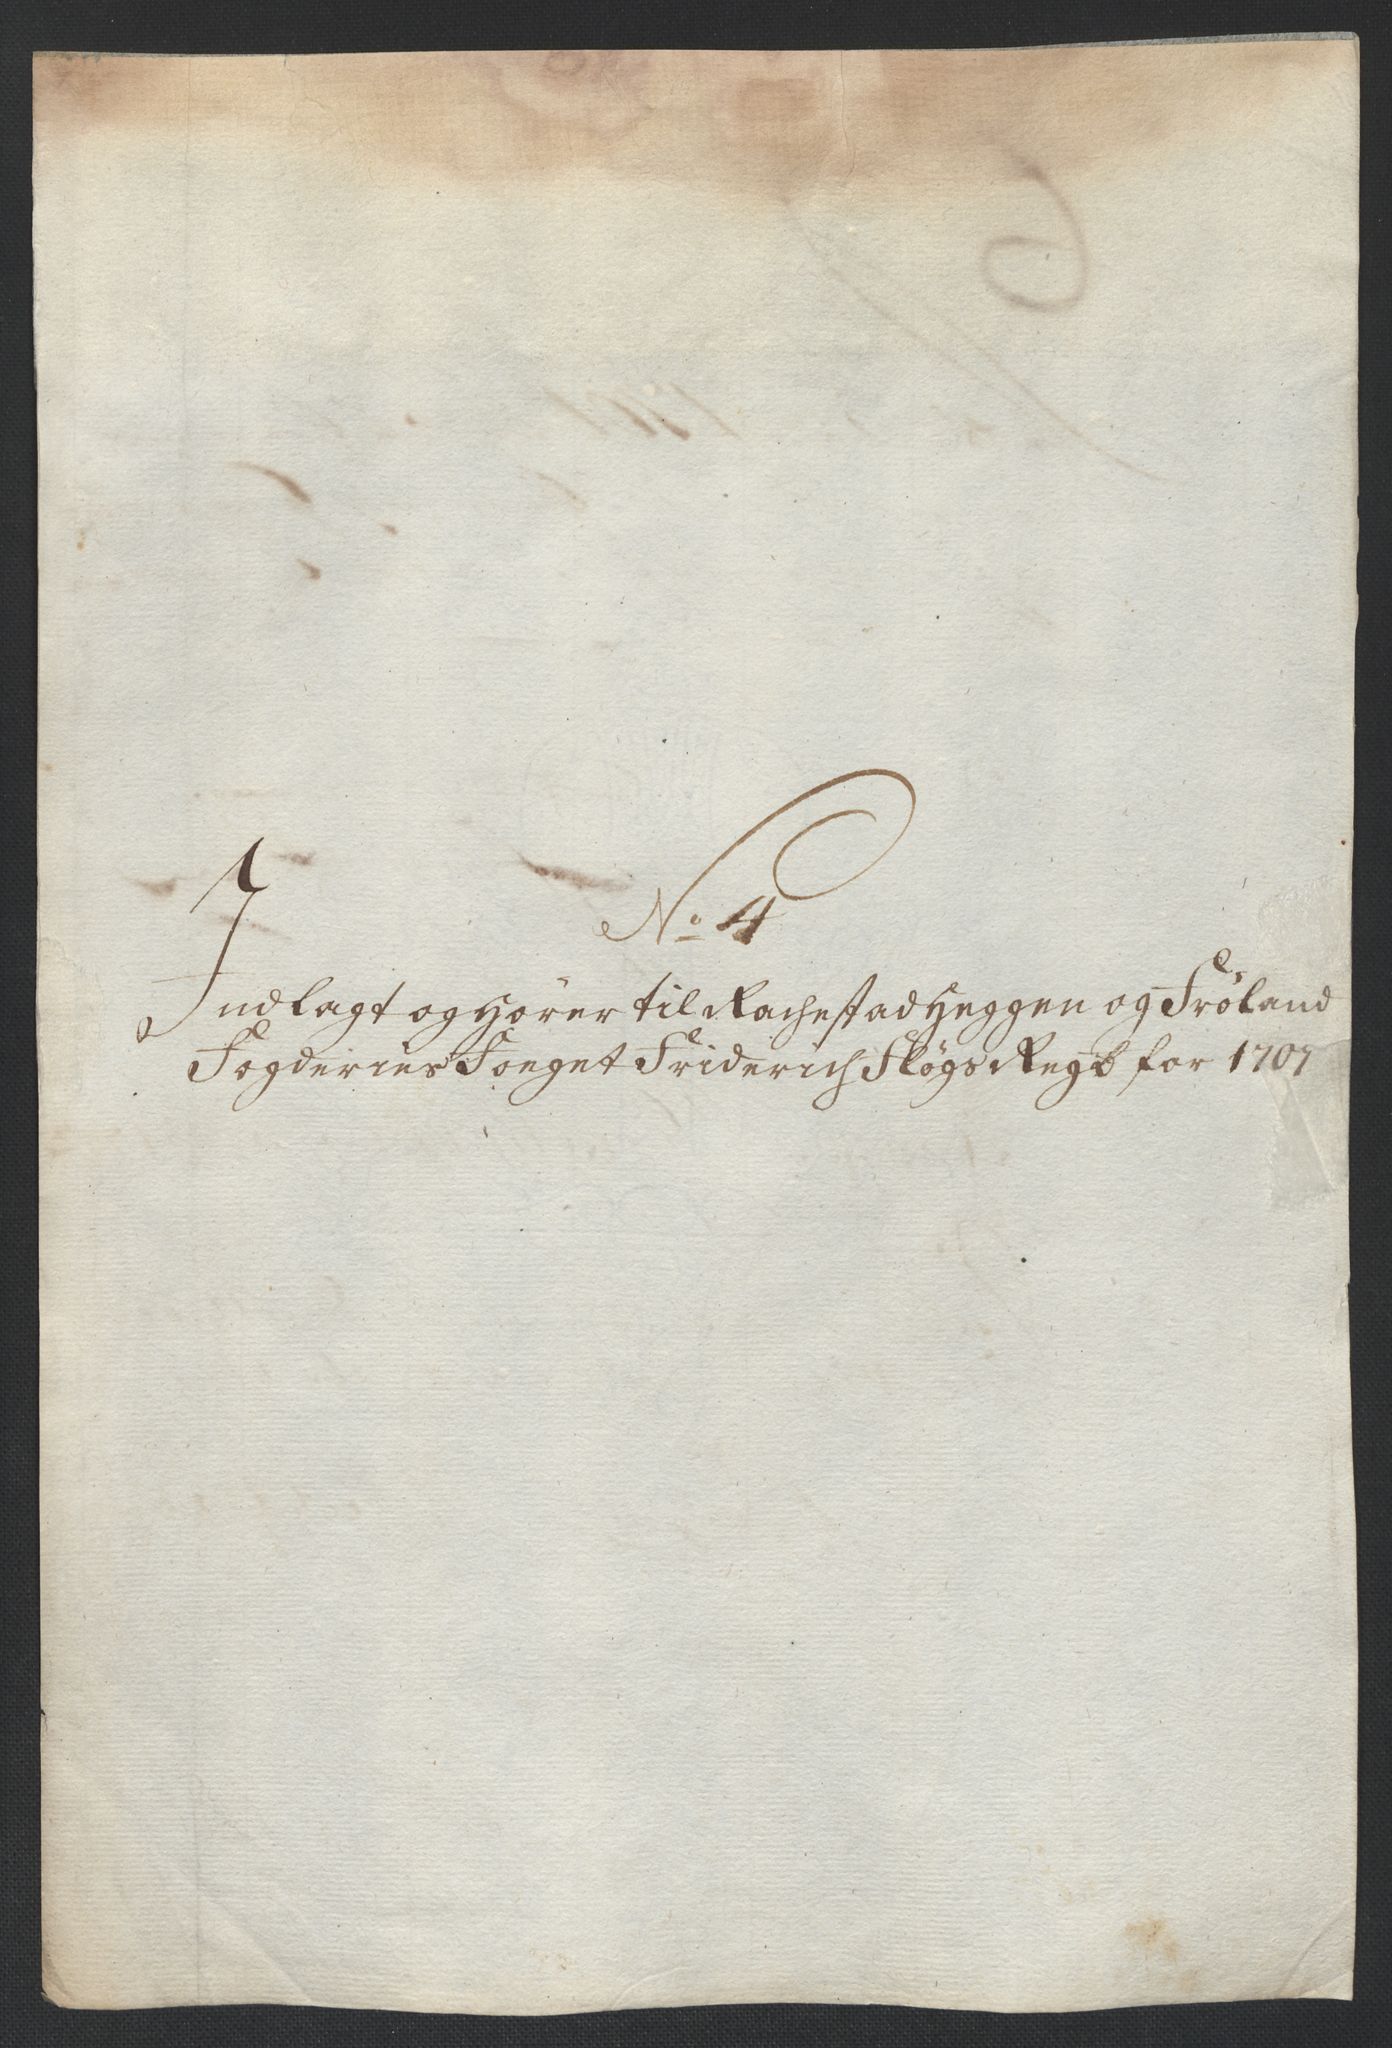 No 4
Indlagt og Hörer til Rachestad Heggen og Fröland
Fogderies Foeget Friderich Flögs Regb for 1707